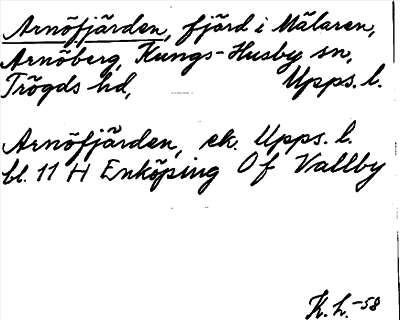 Arnöfjärden, fjärd i Mälaren,
Arnöberg, Kungs-Husby sn,
Trögds hd, Upps. l.
Arnöfjärden, ek. Upps. l.
bl. 11 H Enköping Of Vallby
K. h. -58